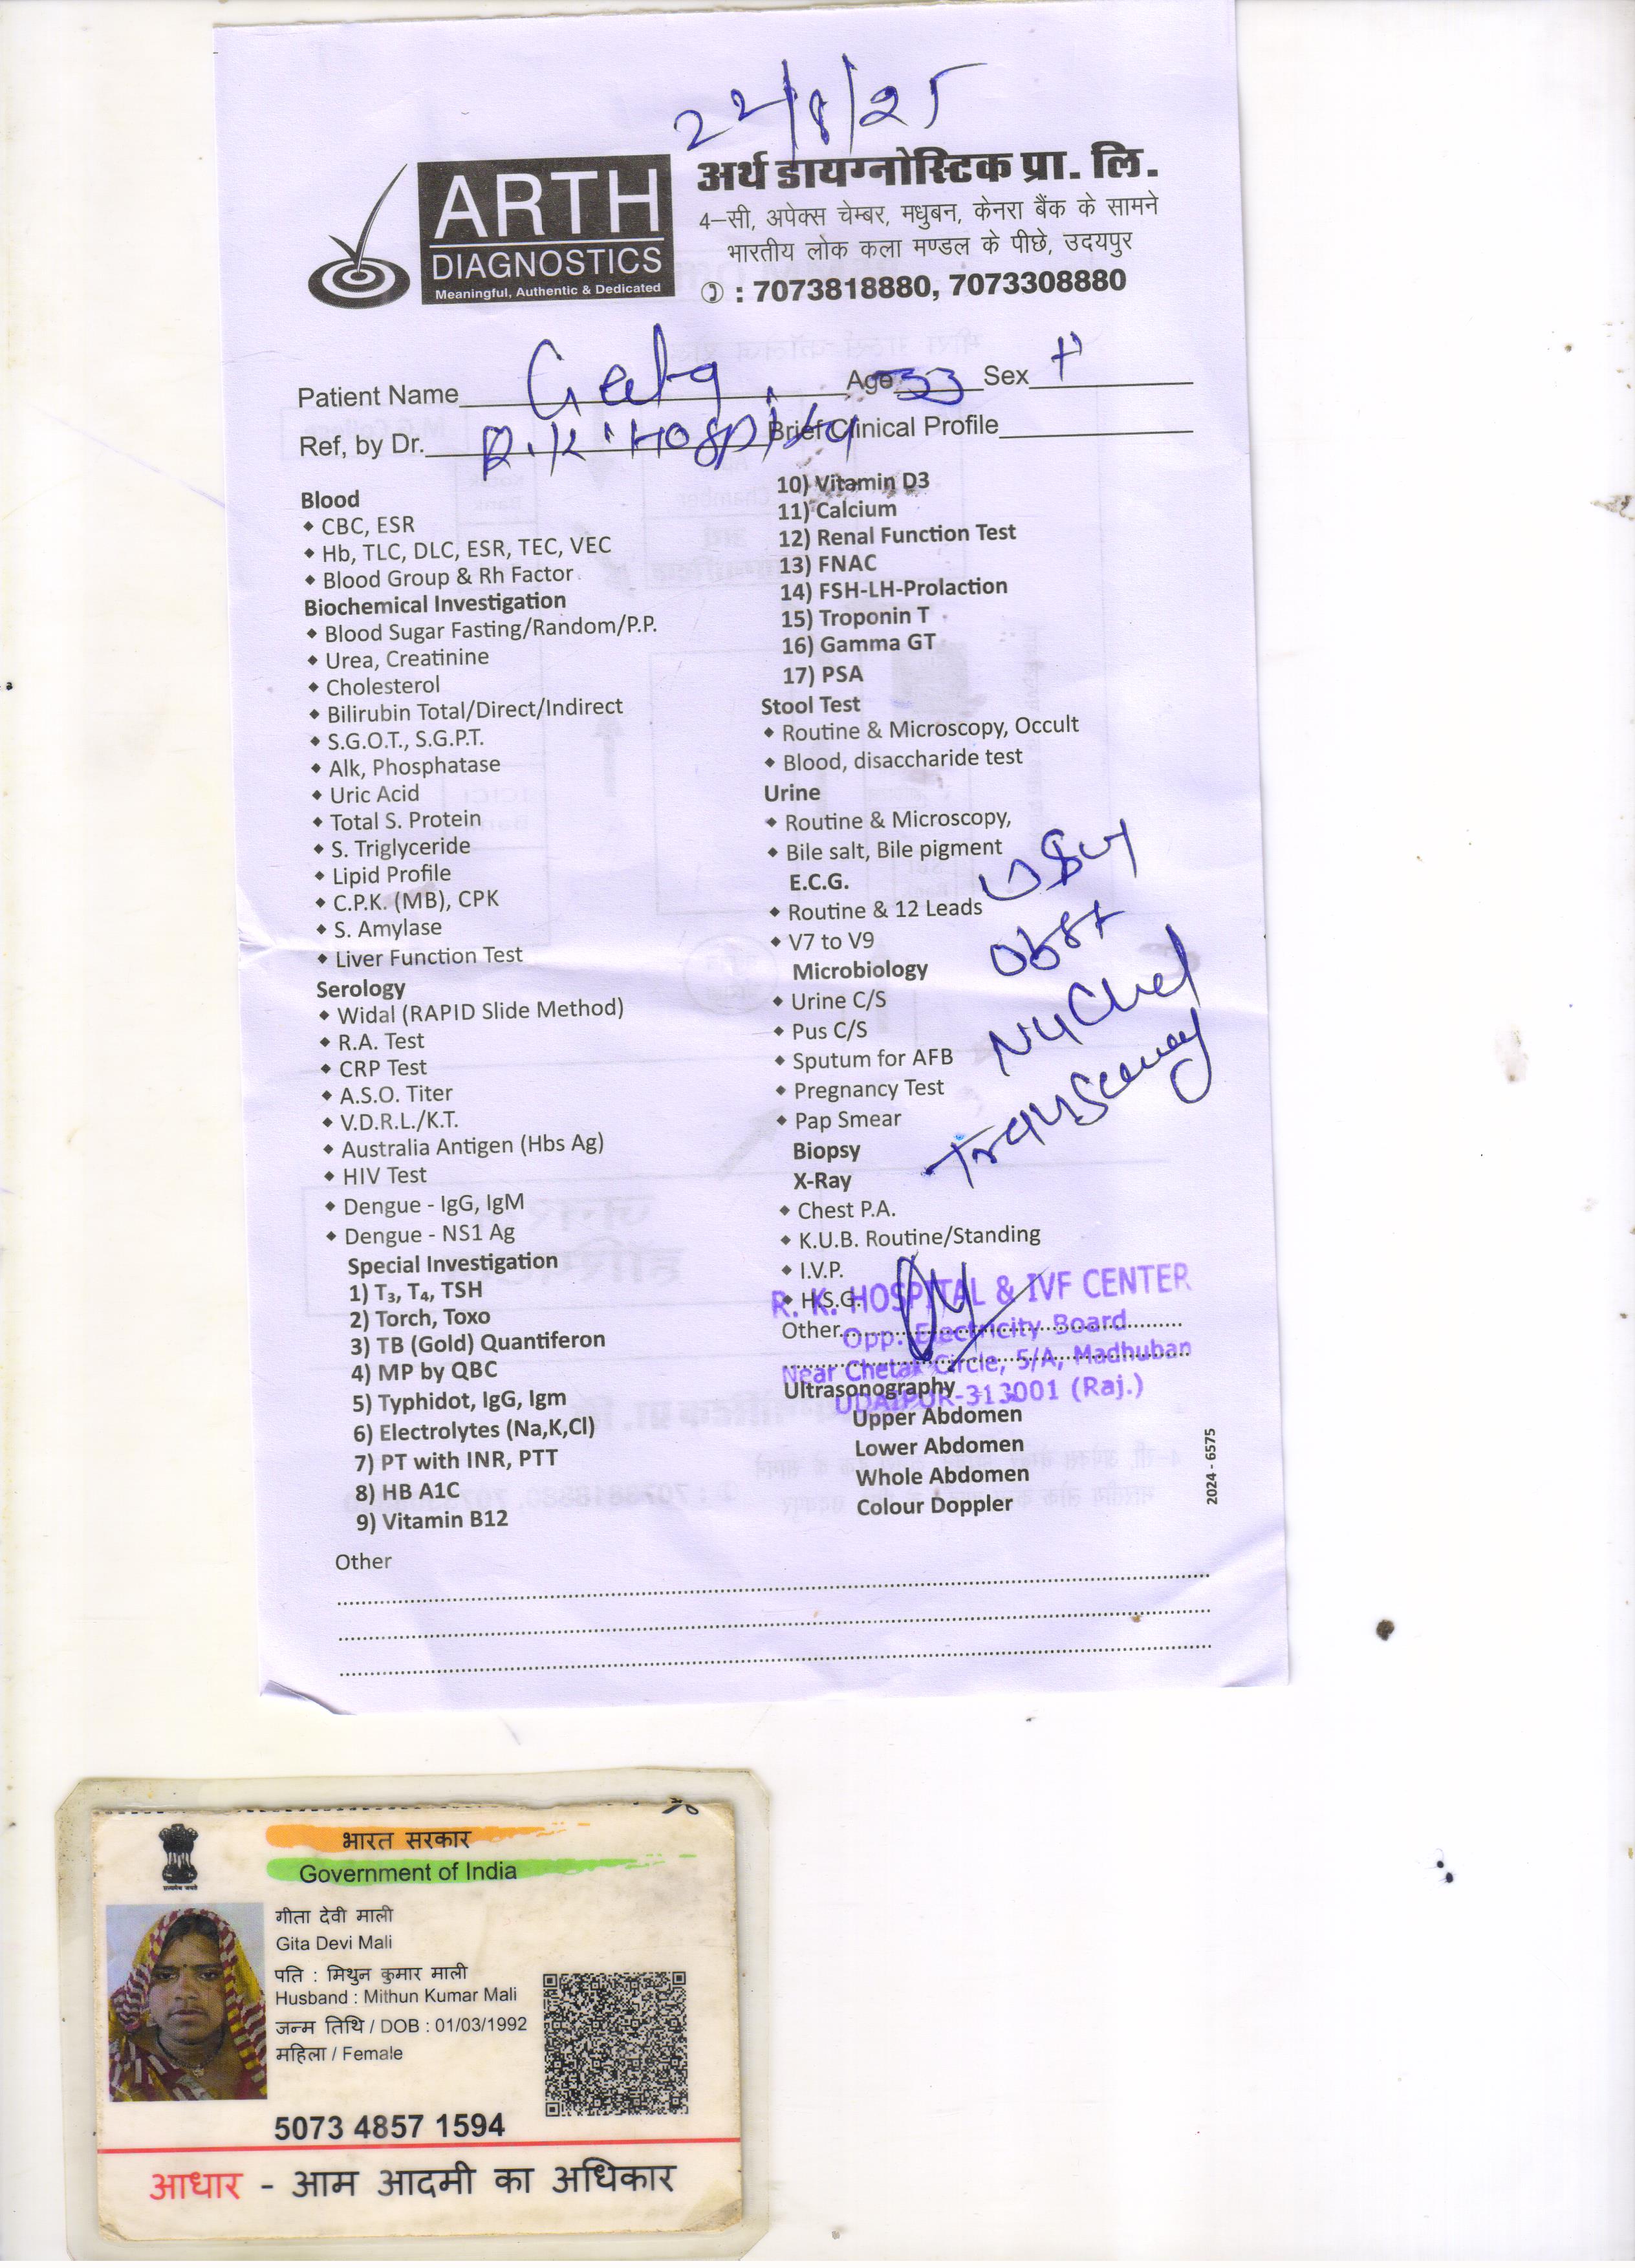 22/8/25
ARTH
DIAGNOSTICS
Meaningful, Authentic & Dedicated
अर्थ डायग्नोस्टिक प्रा. लि.
4–सी, अपेक्स चेम्बर, मधुबन, केनरा बैंक के सामने
भारतीय लोक कला मण्डल के पीछे, उदयपुर
: 7073818880, 7073308880
Patient Name Geeta Age 33 Sex
Ref, by Dr. R.K. Hospital Brief Clinical Profile
Blood
CBC, ESR
Hb, TLC, DLC, ESR, TEC, VEC
Blood Group & Rh Factor
Biochemical Investigation
Blood Sugar Fasting/Random/P.P.
Urea, Creatinine
Cholesterol
Bilirubin Total/Direct/Indirect
S.G.O.T., S.G.P.T.
Alk, Phosphatase
Uric Acid
Total S. Protein
S. Triglyceride
Lipid Profile
C.P.K. (MB), CPK
S. Amylase
Liver Function Test
Serology
Widal (RAPID Slide Method)
R.A. Test
CRP Test
A.S.O. Titer
V.D.R.L./K.T.
Australia Antigen (Hbs Ag)
HIV Test
Dengue - IgG, IgM
Dengue - NS1 Ag
Special Investigation
1) T₃, T₄, TSH
2) Torch, Toxo
3) TB (Gold) Quantiferon
4) MP by QBC
5) Typhidot, IgG, Igm
6) Electrolytes (Na,K,Cl)
7) PT with INR, PTT
8) HB A1C
9) Vitamin B12
10) Vitamin D3
11) Calcium
12) Renal Function Test
13) FNAC
14) FSH-LH-Prolaction
15) Troponin T
16) Gamma GT
17) PSA
Stool Test
Routine & Microscopy, Occult
Blood, disaccharide test
Urine
Routine & Microscopy,
Bile salt, Bile pigment
E.C.G.
Routine & 12 Leads
V7 to V9
Microbiology
Urine C/S
Pus C/S
Sputum for AFB
Pregnancy Test
Pap Smear
Biopsy
X-Ray
Chest P.A.
K.U.B. Routine/Standing
I.V.P.
H.S.G.
Other
Ultrasonography
Upper Abdomen
Lower Abdomen
Whole Abdomen
Colour Doppler
USG
Obst
Nuchal
R. K. HOSPITAL & IVF CENTER
Opp. Electricity Board
Near Chetak Circle, 5/A, Madhuban
UDAIPUR-313001 (Raj.)
2024 - 6575
Other
भारत सरकार
Government of India
गीता देवी माली
Gita Devi Mali
पति : मिथुन कुमार माली
Husband : Mithun Kumar Mali
जन्म तिथि / DOB : 01/03/1992
महिला / Female
5073 4857 1594
आधार - आम आदमी का अधिकार